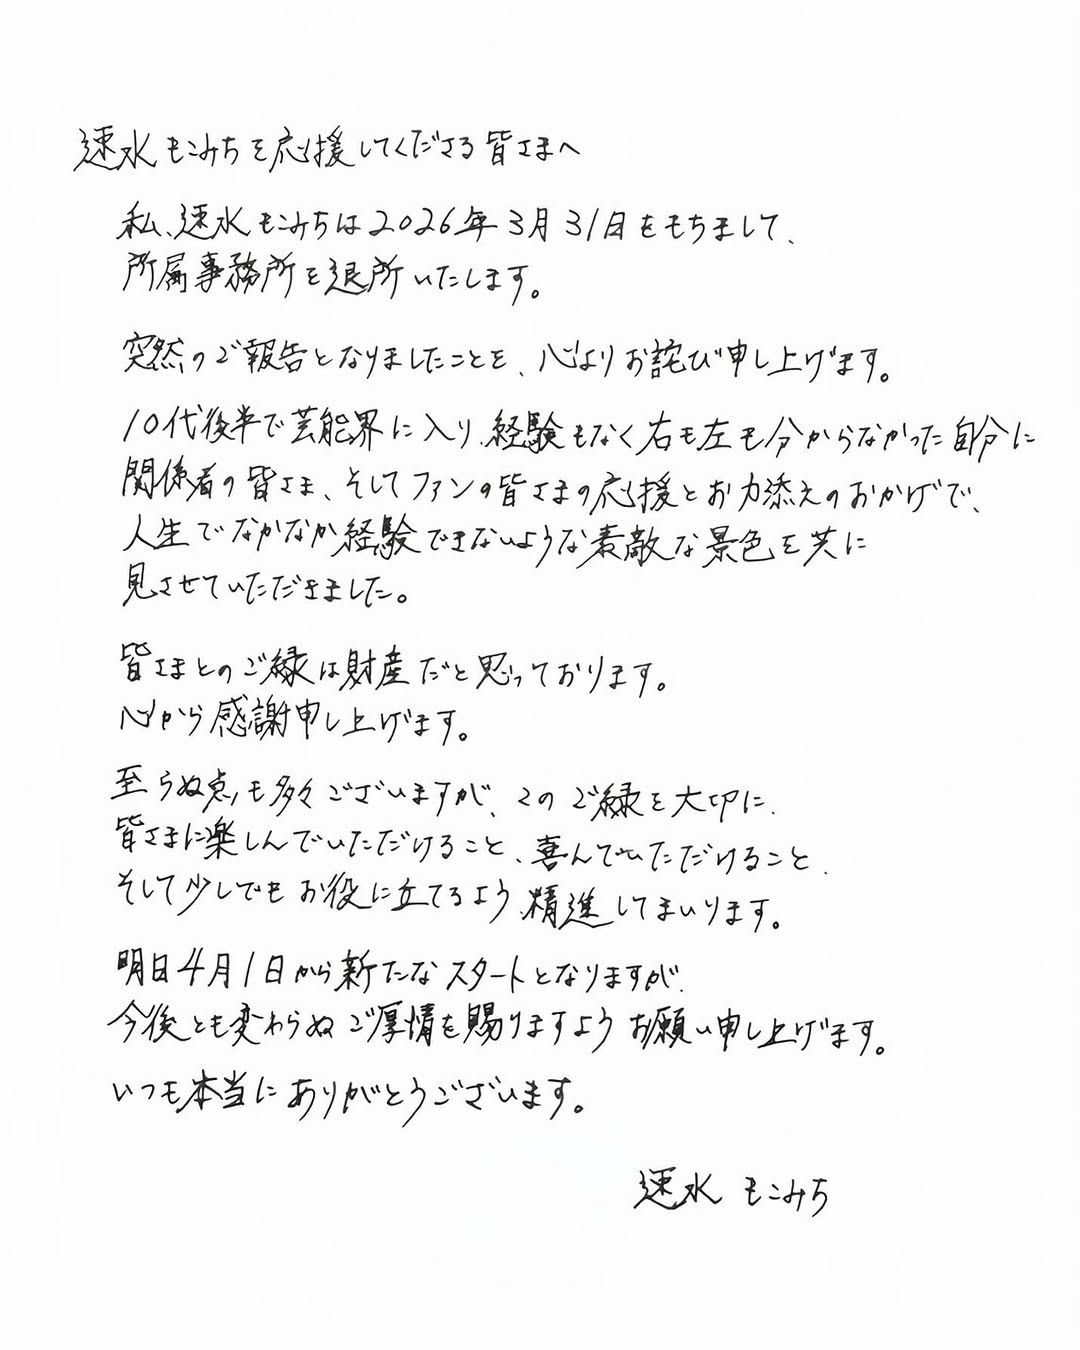 速水もこみちを応援してくださる皆さまへ
私、速水もこみちは2026年3月31日をもちまして、
所属事務所を退所いたします。
突然のご報告となりましたことを、心よりお詫び申し上げます。
10代後半で芸能界に入り、経験もなく右も左も分からなかった自分に
関係者の皆さま、そしてファンの皆さまの応援とお力添えのおかげで、
人生でなかなか経験できないような素敵な景色を共に
見させていただきました。
皆さまとのご縁は財産だと思っております。
心から感謝申し上げます。
至らぬ点も多々ございますが、このご縁を大切に、
皆さまに楽しんでいただけること、喜んでいただけること、
そして少しでもお役に立てるよう、精進してまいります。
明日4月1日から新たなスタートとなりますが、
今後とも変わらぬご厚情を賜りますようお願い申し上げます。
いつも本当にありがとうございます。
速水 もこみち